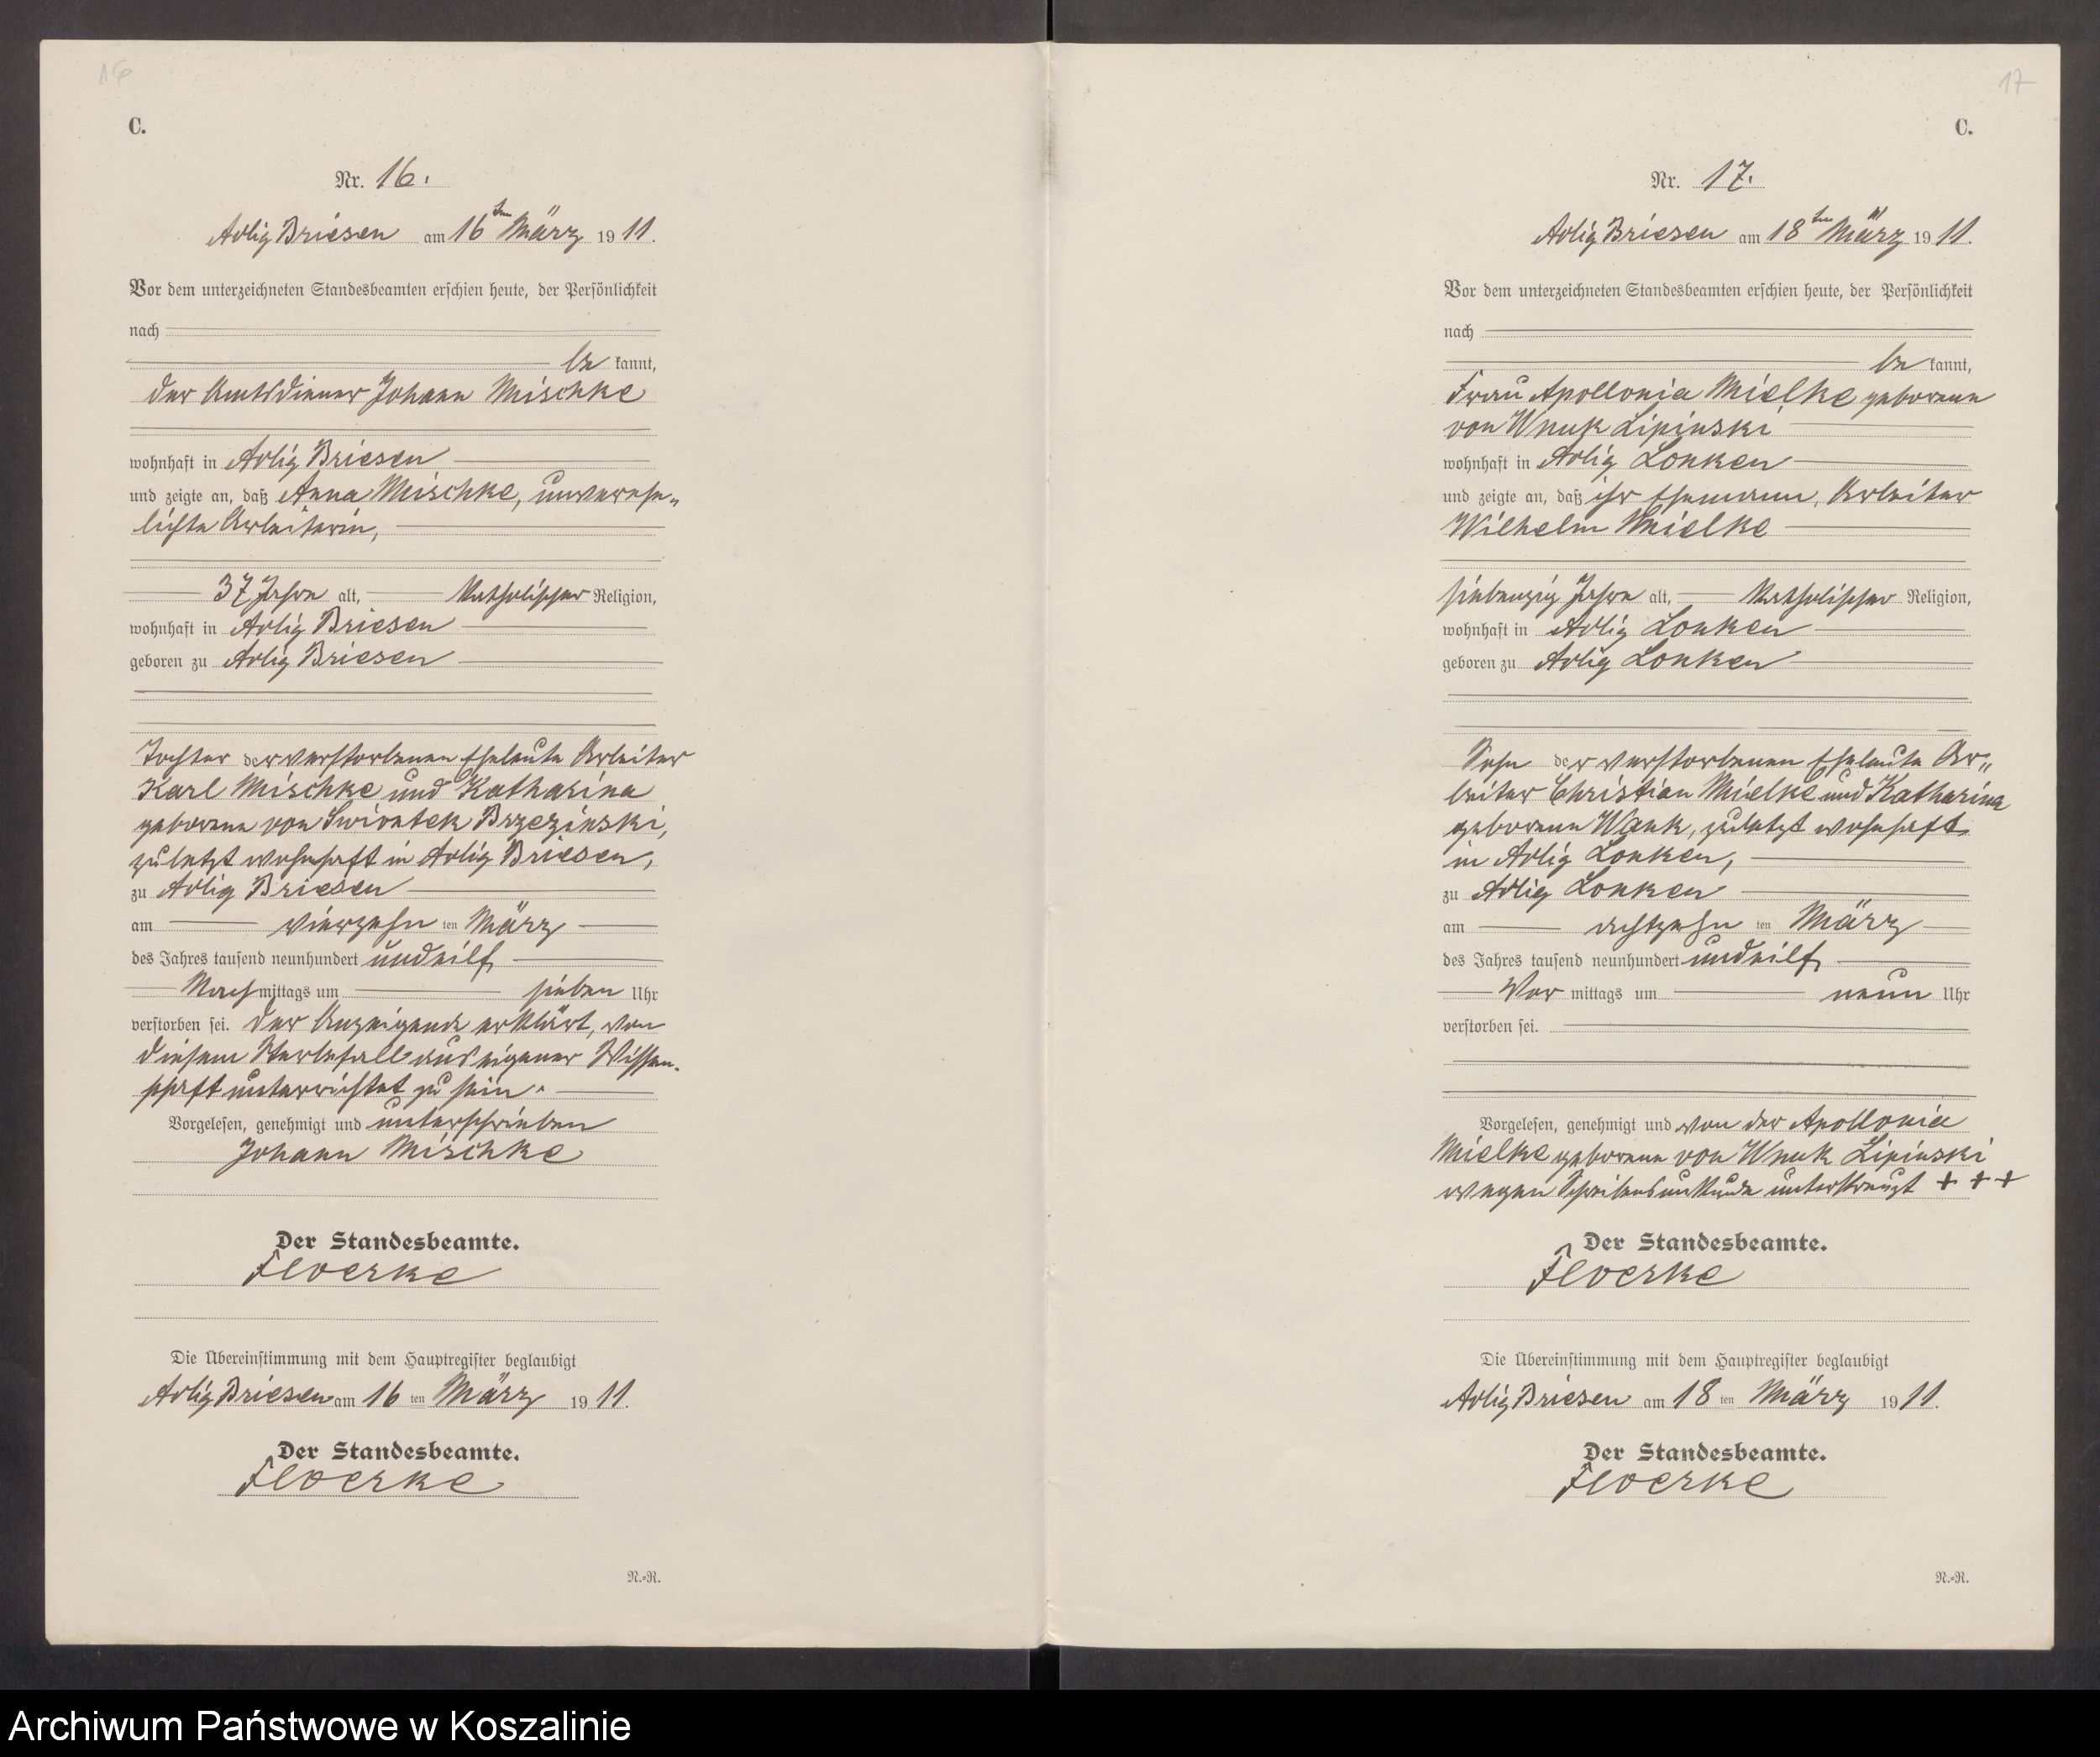 16
C.
Nr. 16.
Adlig Briesen am 16ten März 1911.
Vor dem unterzeichneten Standesbeamten erschien heute, der Persönlichkeit
nach
be kannt,
der Amtsdiener Johann Mischke
wohnhaft in Adlig Briesen
und zeigte an, daß Anna Mischke, unverehe„
lichte Arbeiterin,
37 Jahre alt, Katholischer Religion,
wohnhaft in Adlig Briesen
geboren zu Adlig Briesen
Tochter der verstorbenen Eheleute Arbeiter
Karl Mischke und Katharina
geborene von Swiontek Brzezinski,
zuletzt wohnhaft in Adlig Briesen,
zu Adlig Briesen
am vierzehn ten März
des Jahres tausend neunhundert und eilf
Nach mittags um sieben Uhr
verstorben sei. Der Anzeigende erklärt, von
diesem Sterbefall aus eigener Wissen-
schaft unterrichtet zu sein.
Vorgelesen, genehmigt und unterschrieben
Johann Mischke
Der Standesbeamte.
Floerke
Die Übereinstimmung mit dem Hauptregister beglaubigt
Adlig Briesen am 16 ten März 1911.
Der Standesbeamte.
Floerke
N.-R.
17
C.
Nr. 17.
Adlig Briesen am 18ten März 1911.
Vor dem unterzeichneten Standesbeamten erschien heute, der Persönlichkeit
nach
be kannt,
Frau Apollonia Mielke geborene
von Wnuk Lipinski
wohnhaft in Adlig Lonken
und zeigte an, daß ihr Ehemann, Arbeiter
Wilhelm Mielke
siebenzig Jahre alt, Katholischer Religion,
wohnhaft in Adlig Lonken
geboren zu Adlig Lonken
Sohn der verstorbenen Eheleute Ar„
beiter Christian Mielke und Katharina
geborene Wenk, zuletzt wohnhaft
in Adlig Lonken,
zu Adlig Lonken
am achtzehn ten März
des Jahres tausend neunhundert und eilf
Vor mittags um neun Uhr
verstorben sei.
Vorgelesen, genehmigt und von der Apollonia
Mielke geborene von Wnuk Lipinski
wegen Schreibensunkunde unterkreuzt + + +
Der Standesbeamte.
Floerke
Die Übereinstimmung mit dem Hauptregister beglaubigt
Adlig Briesen am 18 ten März 1911.
Der Standesbeamte.
Floerke
N.-R.
Archiwum Państwowe w Koszalinie